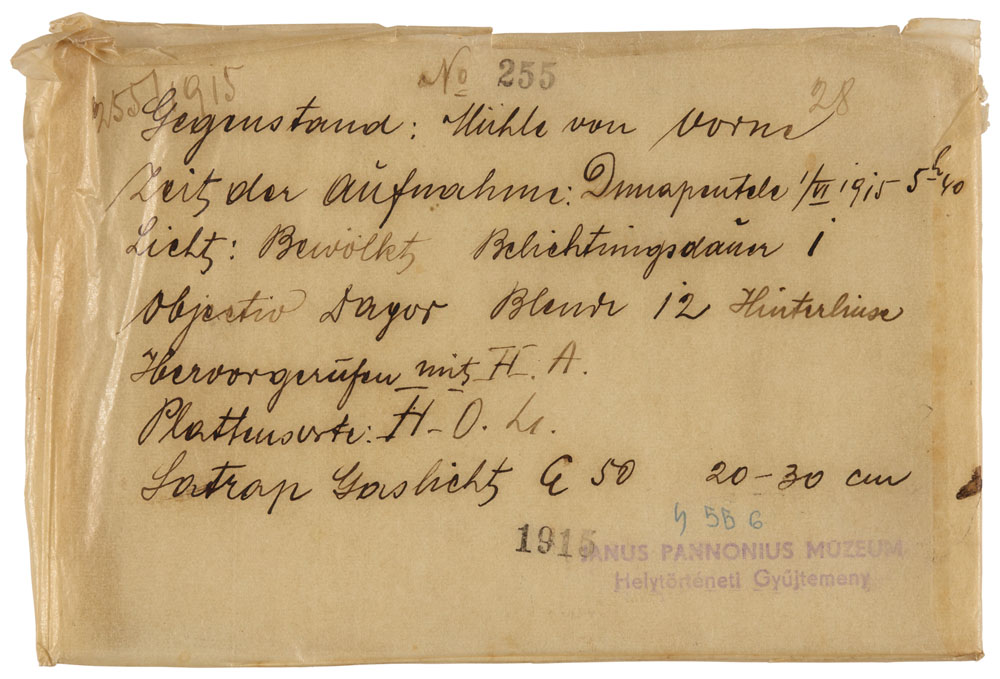 No 255
255/1915
28
Gegenstand: Mühle von vorne
Zeit der Aufnahme: Dunapentele 1/VI 1915 5h 40
Licht: Bewölkt Belichtungsdauer 1
Objectiv Dagor Blende 12 Hinterlinse
Hervorgerufen mit H. A.
Plattensorte: H-O.
Satrap Gaslicht G 50 20-30 cm
5B6
1915
JANUS PANNONIUS MÚZEUM
Helytörténeti Gyűjtemény